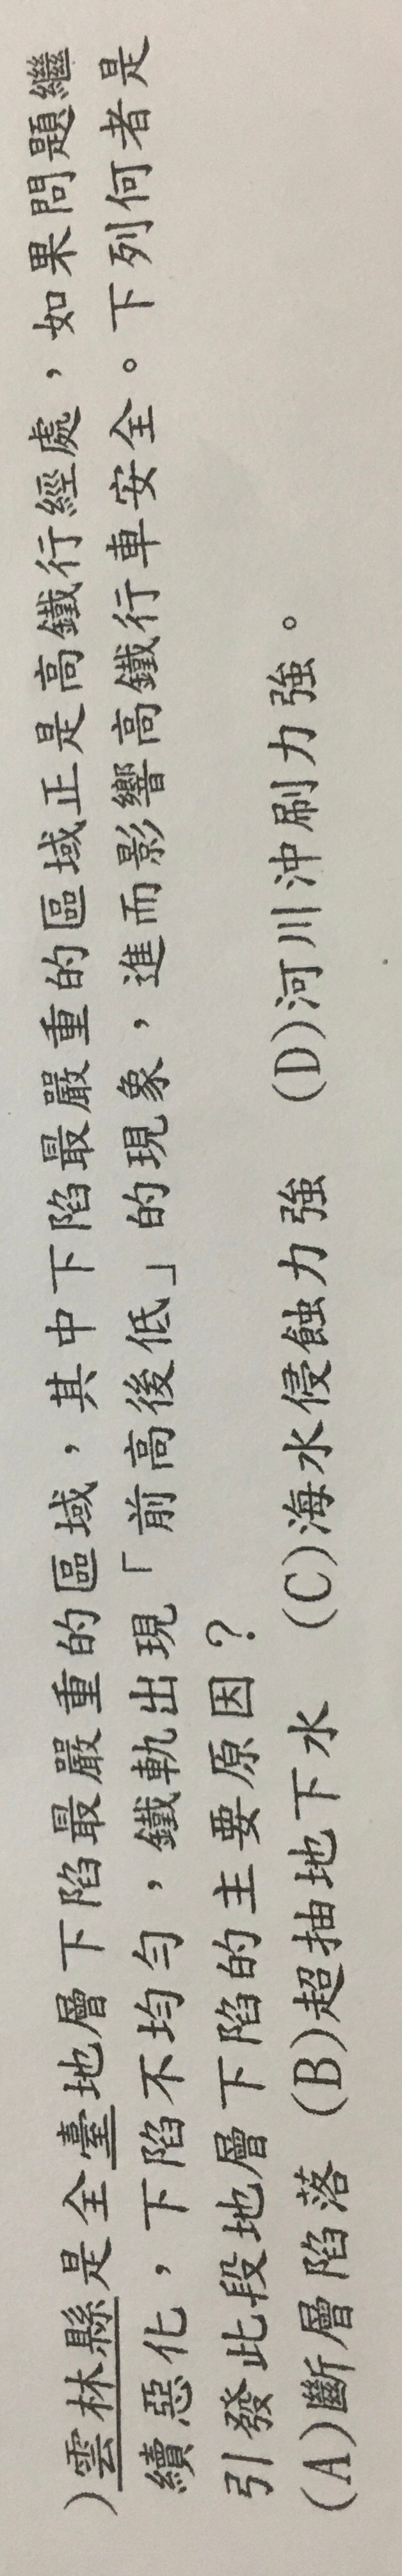 )雲林縣是全臺地層下陷最嚴重的區域，其中下陷最嚴重的區域正是高鐵行經處，如果問題繼
續惡化，下陷不均勻，鐵軌出現「前高後低」的現象，進而影響高鐵行車安全。下列何者是
引發此段地層下陷的主要原因？
(A)斷層陷落 (B)超抽地下水 (C)海水侵蝕力強 (D)河川沖刷力強。